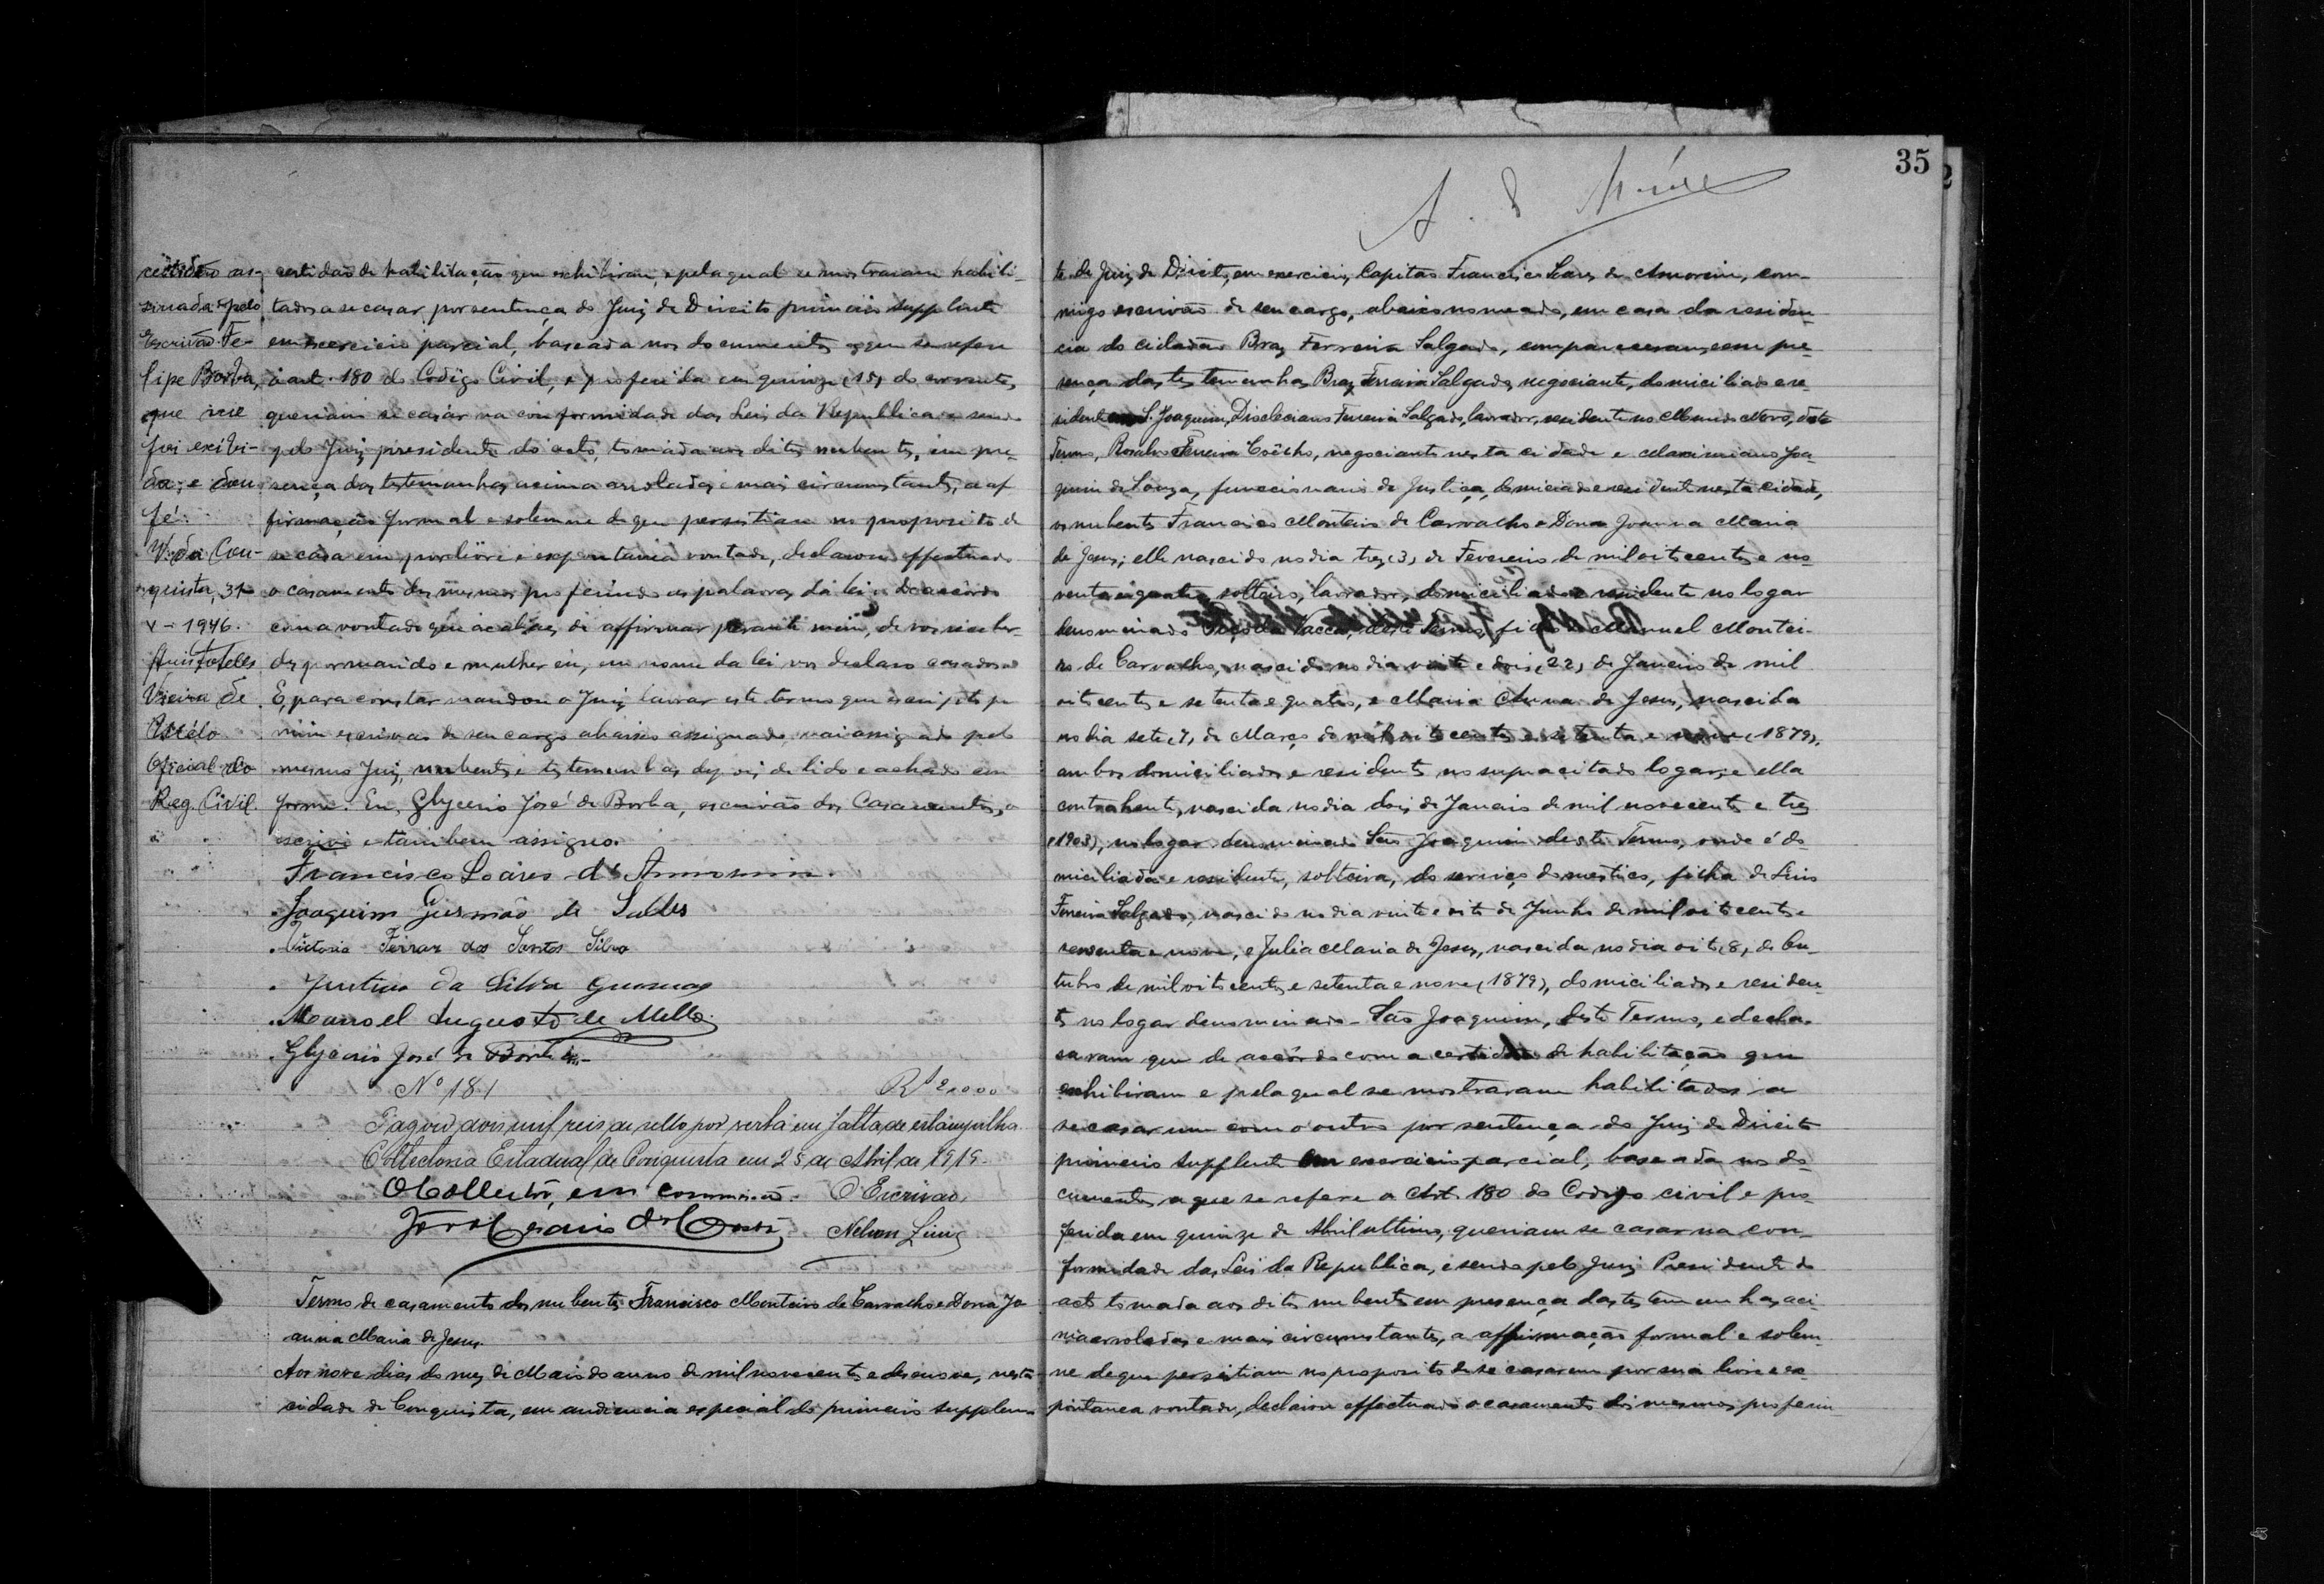 certidão as-
sinada pelo
Escrivão Fe-
lipe Borba,
que me
foi exibi-
da; e dou
fé.
V. da Con-
quista, 31-
V-1946.
Aristoteles
Vieira de
Mélo
Oficial do
Reg. Civil.
certidão de habilitação que exhibiram, e pela qual se mostraram habili-
tados a se casar por sentença do Juiz de Direito primeiro supplente
em exercicio parcial, baseada nos documentos a que se refere
o art. 180 do Codigo Civil, e proferida em quinze (15) do corrente,
queriam se casar na conformidade das Leis da Republica e sendo
pelo Juiz presidente do acto, tomada aos ditos nubentes, em pre-
sença das testemunhas acima arroladas e mais circumstantes, a af-
firmação formal e solemne de que persistiam no proposito de
se casarem por livre e expontanea vontade, declarou effectuado
o casamento dos mesmos proferindo as palavras da lei: De accôrdo
com a vontade que acabaes de affirmar perante mim, de vos receber-
des por marido e mulher eu, em nome da lei vos declaro casados.
E, para constar mandou o Juiz lavrar este termo que escripto por
mim escrivão de seu cargo abaixo assignado, vai assignado pelo
mesmo Juiz, nubentes e testemunhas depois de lido e achado con-
forme. Eu, Glycerio José de Borba, escrivão dos Casamentos, o
escrivi e tambem assigno.
Francisco Soáres d'Amorim.
Joaquim Gusmão de Salles
Victoria Ferraz dos Santos Silva
Justino da Silva Gusmão
Manoel Augusto de Mello
Glycerio José de Borba
Nº 181 Rs 2.000
Pagou dois mil reis de sello por verba em falta de estampilha.
Collectoria Estadual de Conquista em 25 de Abril de 1919.
O Collector, em commissão. O Escrivão,
Nelson
Termo de casamento dos nubentes Francisco Monteiro de Carvalho e Dona Jo-
anna Maria de Jesus.
Aos nove dias do mez de Maio do anno de mil novecentos e desenove, nesta
cidade de Conquista, em audiencia especial do primeiro supplen-
35
te do Juiz de Direito, em exercicio, Capitão Francisco Soares de Amorim, com-
migo escrivão de seu cargo, abaixo nomeado, em casa da residen-
cia do cidadão Braz Ferreira Salgado, compareceram, em pre-
sença das testemunhas Braz Ferreira Salgado, negociante, domiciliado e re-
sidente em S. Joaquim, Diocleciano Ferreira Salgado, lavrador, residente no Mundo Novo, deste
Termo, Ferreira Coêlho, negociante nesta cidade e Maximiano Joa-
quim de Souza, funccionario de Justiça, domiciliado e residente nesta cidade,
os nubentes Francisco Monteiro de Carvalho e Dona Joanna Maria
de Jesus; elle nascido no dia trez (3) de Fevereiro de mil oitocentos e no-
venta e quatro, solteiro, lavrador, domiciliado e residente no logar
denominado da Vacca, deste Termo, filho de Manuel Montei-
ro de Carvalho, nascido no dia vinte e dois (22) de Janeiro de mil
oitocentos e setenta e quatro, e Maria Anna de Jesus, nascida
no dia sete (7) de Março de mil oitocentos e setenta e nove (1879),
ambos domiciliados e residentes no supracitado logar; e ella
contrahente, nascida no dia dois de Janeiro de mil novecentos e trez
(1903), no logar denominado São Joaquim deste Termo, onde é do-
miciliada e residente, solteira, do serviço domestico, filha de Luis
Ferreira Salgado, nascido no dia vinte e oito de Junho de mil oitocentos e
sessenta e nove, e Julia Maria de Jesus, nascida no dia oito (8) de Ou-
tubro de mil oitocentos e setenta e nove (1879), domiciliados e residen-
tes no logar denominado - São Joaquim, deste Termo, e decla-
raram que de accôrdo com a certidão de habilitação que
exhibiram e pela qual se mostraram habilitados a
se casar um com o outro por sentença do Juiz de Direito
primeiro supplente em exercicio parcial, baseada nos do-
cumentos a que se refere o Art. 180 do Codigo civil e pro-
ferida em quinze de Abril ultimo, queriam se casar na con-
formidade das Leis da Republica, e sendo pelo Juiz Presidente do
acto tomada aos ditos nubentes em presença das testemunhas aci-
ma arroladas e mais circumstantes, a affirmação formal e solem-
ne de que persistiam no proposito de se casarem por sua livre e es-
pontanea vontade, declarou effectuado o casamento dos mesmos proferin-